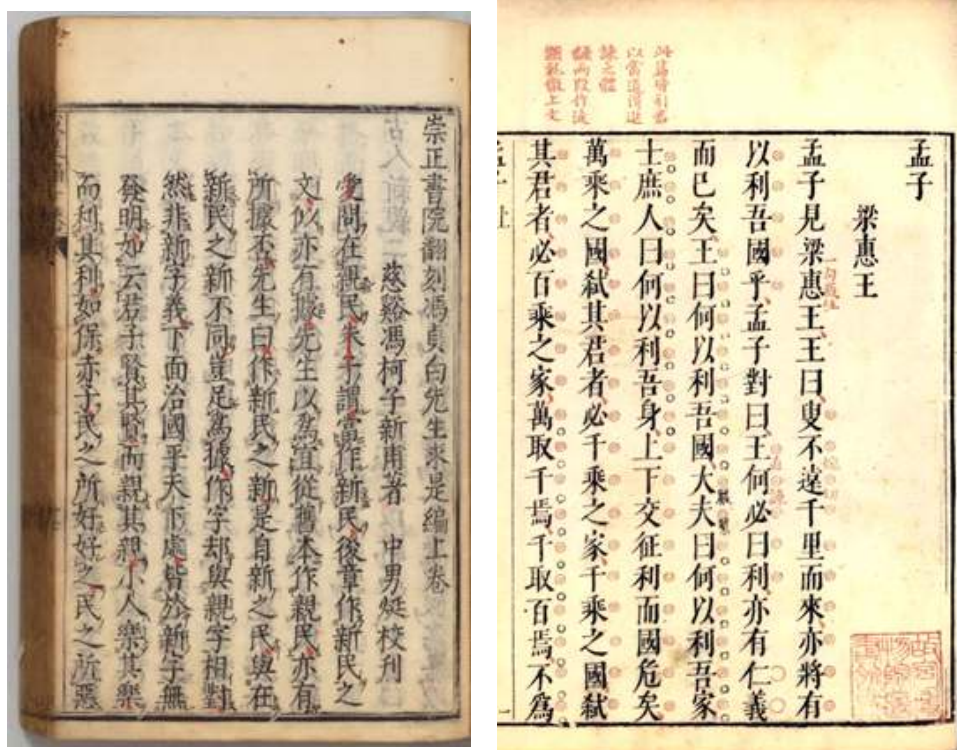 崇正書院翻刻馮貞白先生求是編上卷
慈谿馮柯子新甫著 中男烶校刊
愛問在親民朱子謂當作新民後章作新民之
文似亦有據先生以為宜從舊本作親民亦有
所據否先生曰作新民之新是自新之民與在
新民之新不同豈足為據作字却與親字相對
然非新字義下面治國平天下處皆於新字無
發明如云君子賢其賢而親其親小人樂其樂
而利其利如保赤子民之所好好之民之所惡
此篇皆引君
以當道得進
諫之體
孟子
梁惠王
孟子見梁惠王王曰叟不遠千里而來亦將有
以利吾國乎孟子對曰王何必曰利亦有仁義
而已矣王曰何以利吾國大夫曰何以利吾家
士庶人曰何以利吾身上下交征利而國危矣
萬乘之國弒其君者必千乘之家千乘之國弒
其君者必百乘之家萬取千焉千取百焉不為